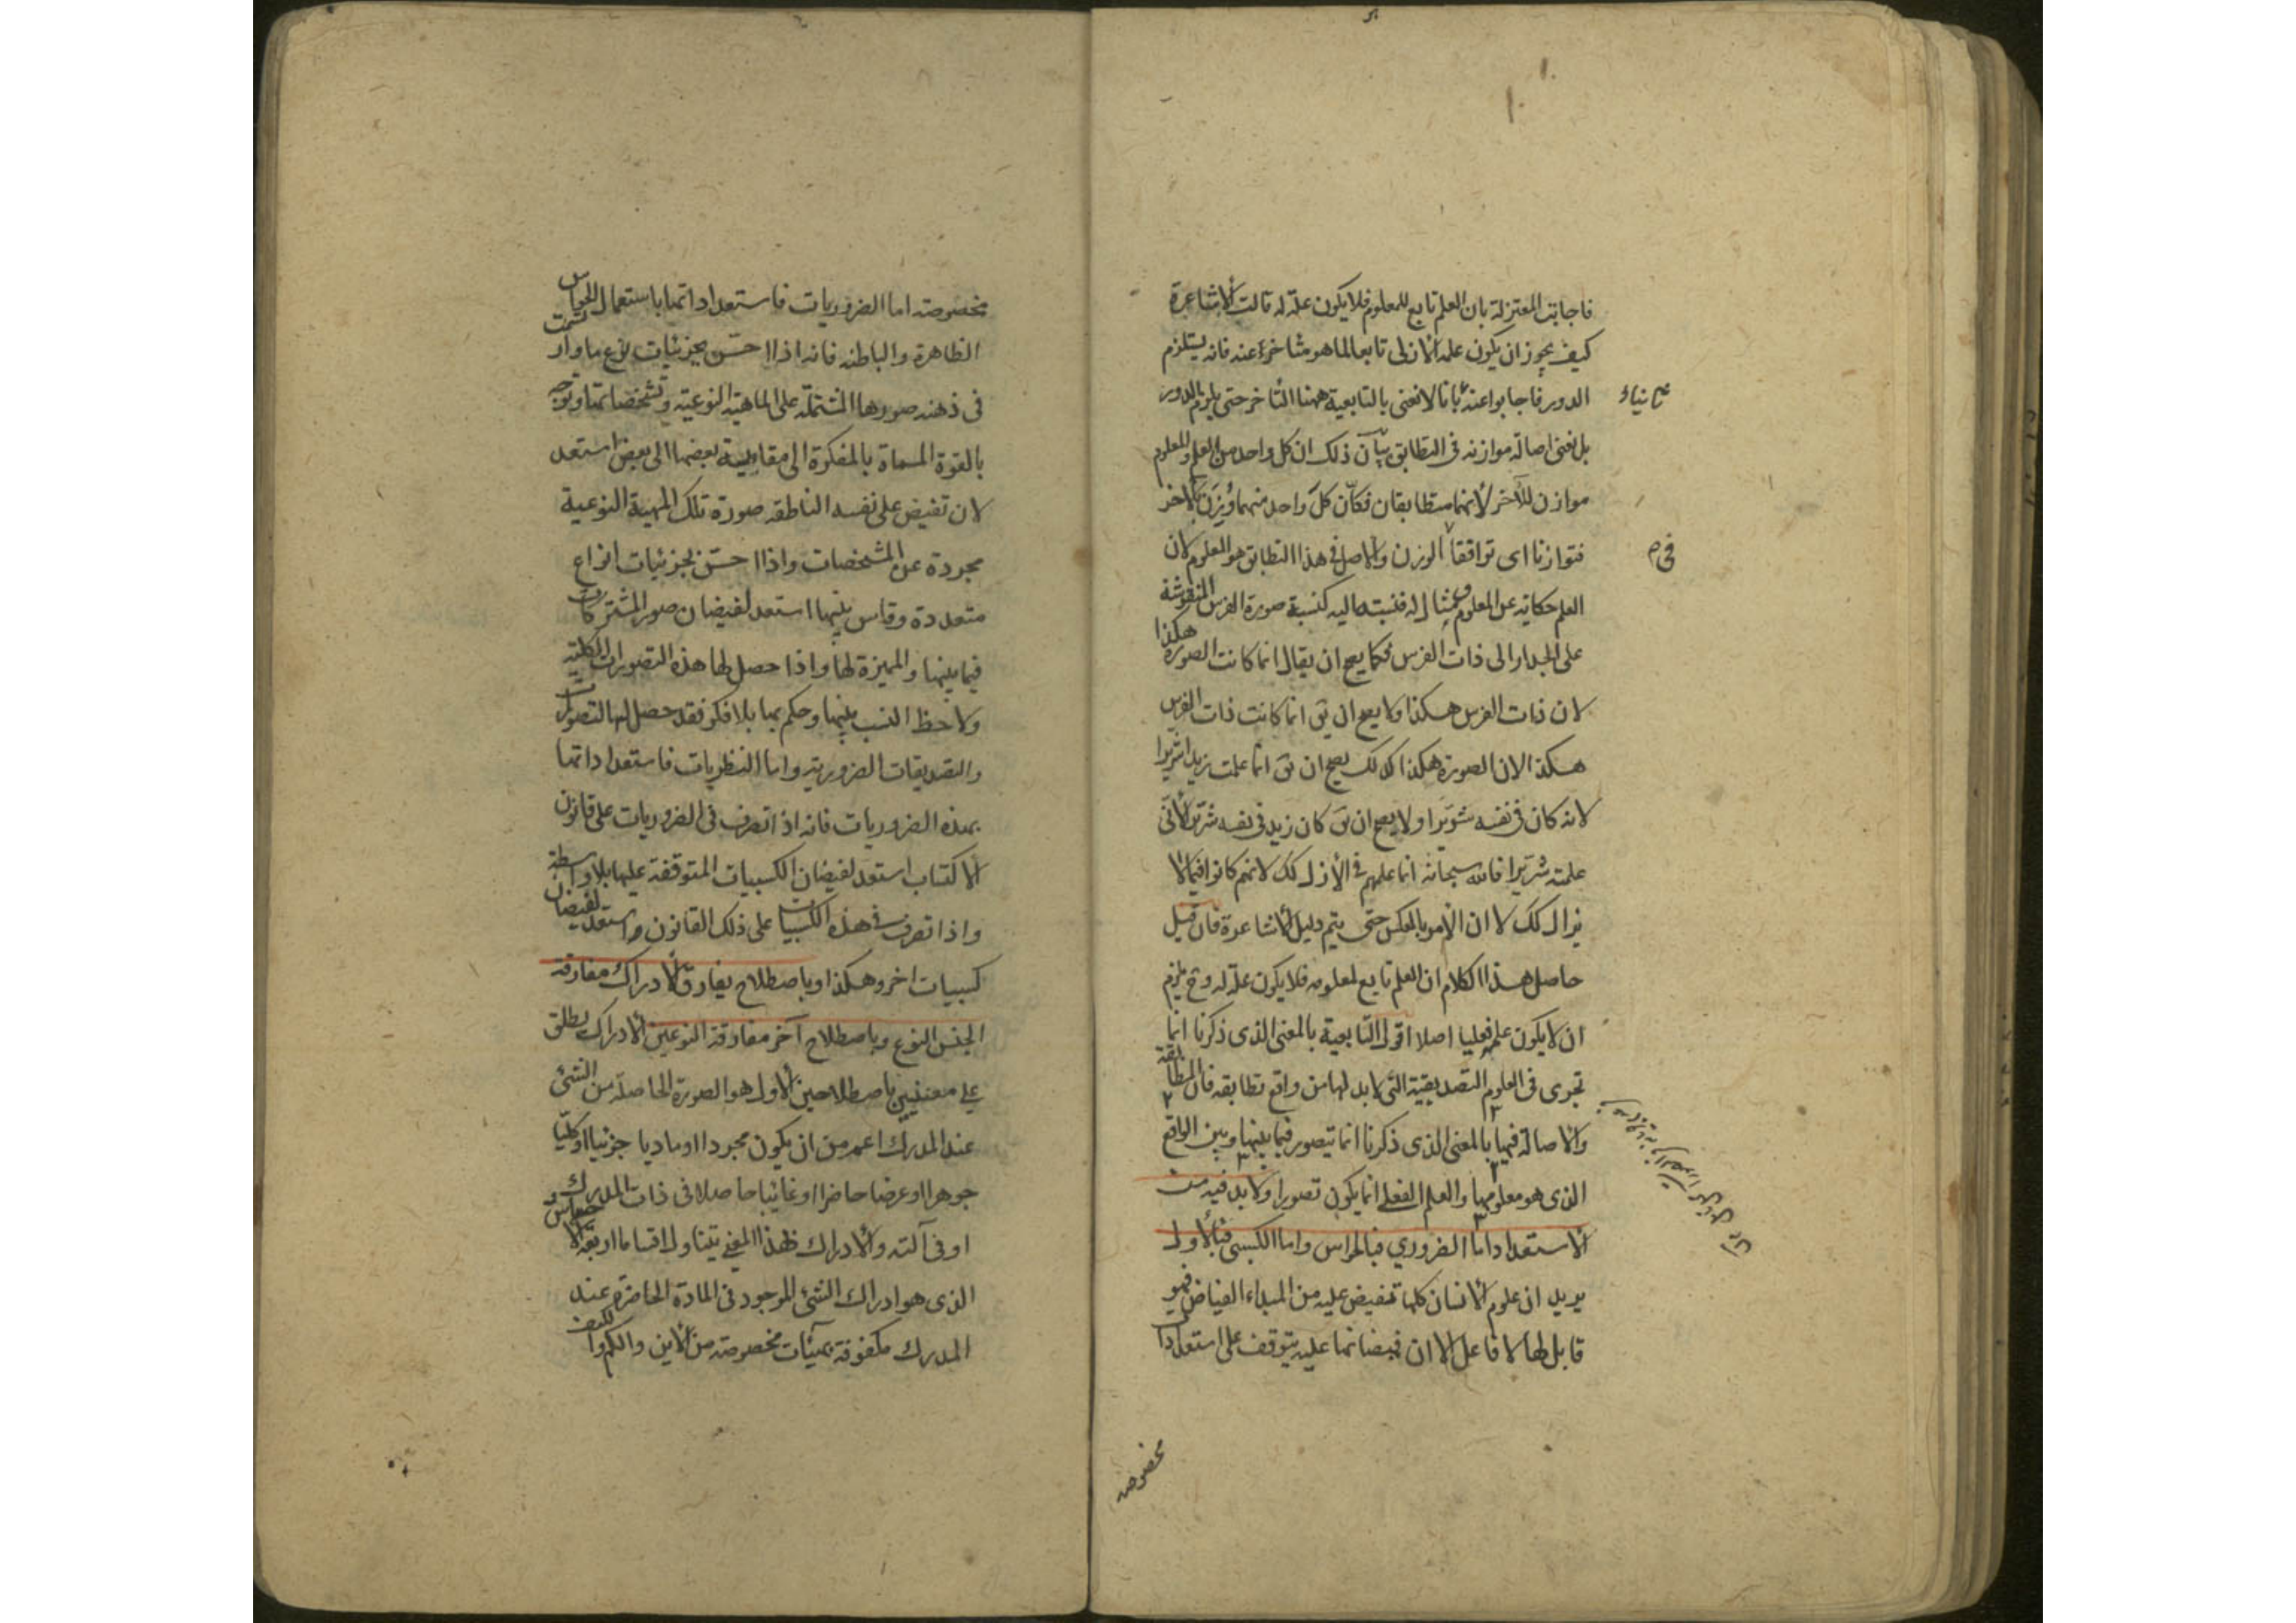 فاجابت المعتزلة بان العلم تابع للمعلوم فلا يكون علة له قالت الاشاعرة
كيف يجوز ان يكون علمه الازلى تابعا لما هو متاخر عنه فانه يستلزم
الدور فاجابوا عنه بانا لا نعنى بالتابعية ههنا التأخر حتى يلزم الدور
بل نعنى اصالة موازنه فى التطابق بيان ذلك ان كل واحد من العلم والمعلوم
موازن للآخر لأنهما متطابقان فكأن كل واحد منهما وُزِنَ بالاخر
فتوازنا اى توافقا الوزن والاصل فى هذا التطابق هو المعلوم لان
العلم حكاية عن المعلوم ومثال له فنسبته اليه كنسبة صورة الفرس المنقوشة
على الجدار الى ذات الفرس فكما يصح ان يقال انما كانت الصورة هكذا
لان ذات الفرس هكذا ولا يصح ان يق انما كانت ذات الفرس
هكذا لان الصورة هكذا كذلك يصح ان يق انما علمت زيدا شريرا
لانه كان فى نفسه شريرا ولا يصح ان يق كان زيد فى نفسه شريرا لأنى
علمته شريرا فالله سبحانه انما علمهم فى الأزل كك لانهم كانوا فيما لا
يزال كك لا ان الأمر بالعكس حتى يتم دليل الاشاعرة فان قيل
حاصل هذا الكلام ان العلم تابع لمعلومه فلا يكون علة له وح يلزم
ان لا يكون علم فعليا اصلا اقول التابعية بالمعنى الذى ذكرنا انما
تجرى فى العلوم التصديقية التى لا بد لها من واقع تطابقه فان المطابقة
والاصالة فيها بالمعنى الذى ذكرنا انما تتصور فيما بينها وبين الواقع
الذى هو معلومها والعلم الفعلى انما يكون تصورا ولا بد فيه من
الاستعداد اما الضروري فبالحواس واما الكسبى فبالأول
يريد ان علوم الانسان كلها تفيض عليه من المبداء الفياض فهو
قابل لها لا فاعل الا ان فيضانها عليه يتوقف على استعدادا
ثانياء
فى م
مخصوصه
مخصوصة اما الضروريات فاستعداداتها باستعمال الحواس
الظاهرة والباطنه فانه اذا احسّ بجزئيات نوع ما وارتسمت
فى ذهنه صورها المشتملة على الماهية النوعية وتشخصاتها وتوجه
بالقوة المسماة بالمفكرة الى مقايسة بعضها الى بعض استعد
لان تفيض على نفسه الناطقه صورة تلك المهية النوعية
مجردة عن المشخصات واذا احسّ بجزئيات انواع
متعددة وقاس بينها استعد لفيضان صور المشتركات
فيما بينها والمميزة لها واذا حصل لها هذه التصورات الكلية
ولاحظ النسب بينها وحكم بها بلا فكر فقد حصل لها التصورات
والتصديقات الضرورية واما النظريات فاستعداداتها
بهذه الضروريات فانه اذا تصرف فى الضروريات على قانون
الاكتساب استعد لفيضان الكسبيات المتوقفة عليها بلا واسطة
واذا تصرف فى هذه الكسبيات على ذلك القانون استعد لفيضان
كسبيات اخر وهكذا وباصطلاح يفارق الادراك مفارقة
الجنس النوع وباصطلاح آخر مفارقة النوعين الادراك يطلق
على معنيين باصطلاحين الأول هو الصورة الحاصلة من الشئ
عند المدرك اعم من ان يكون مجردا او ماديا جزئيا او كليّا
جوهرا او عرضا حاضرا او غائبا حاصلا فى ذات المدرك
او فى آلته والادراك بهذا المعنى يتناول اقساما اربعة الاحساس
الذى هو ادراك الشئ الموجود فى المادة الحاضرة عند
المدرك مكفوفة بهيئات مخصوصة من الاين والكم والكيف